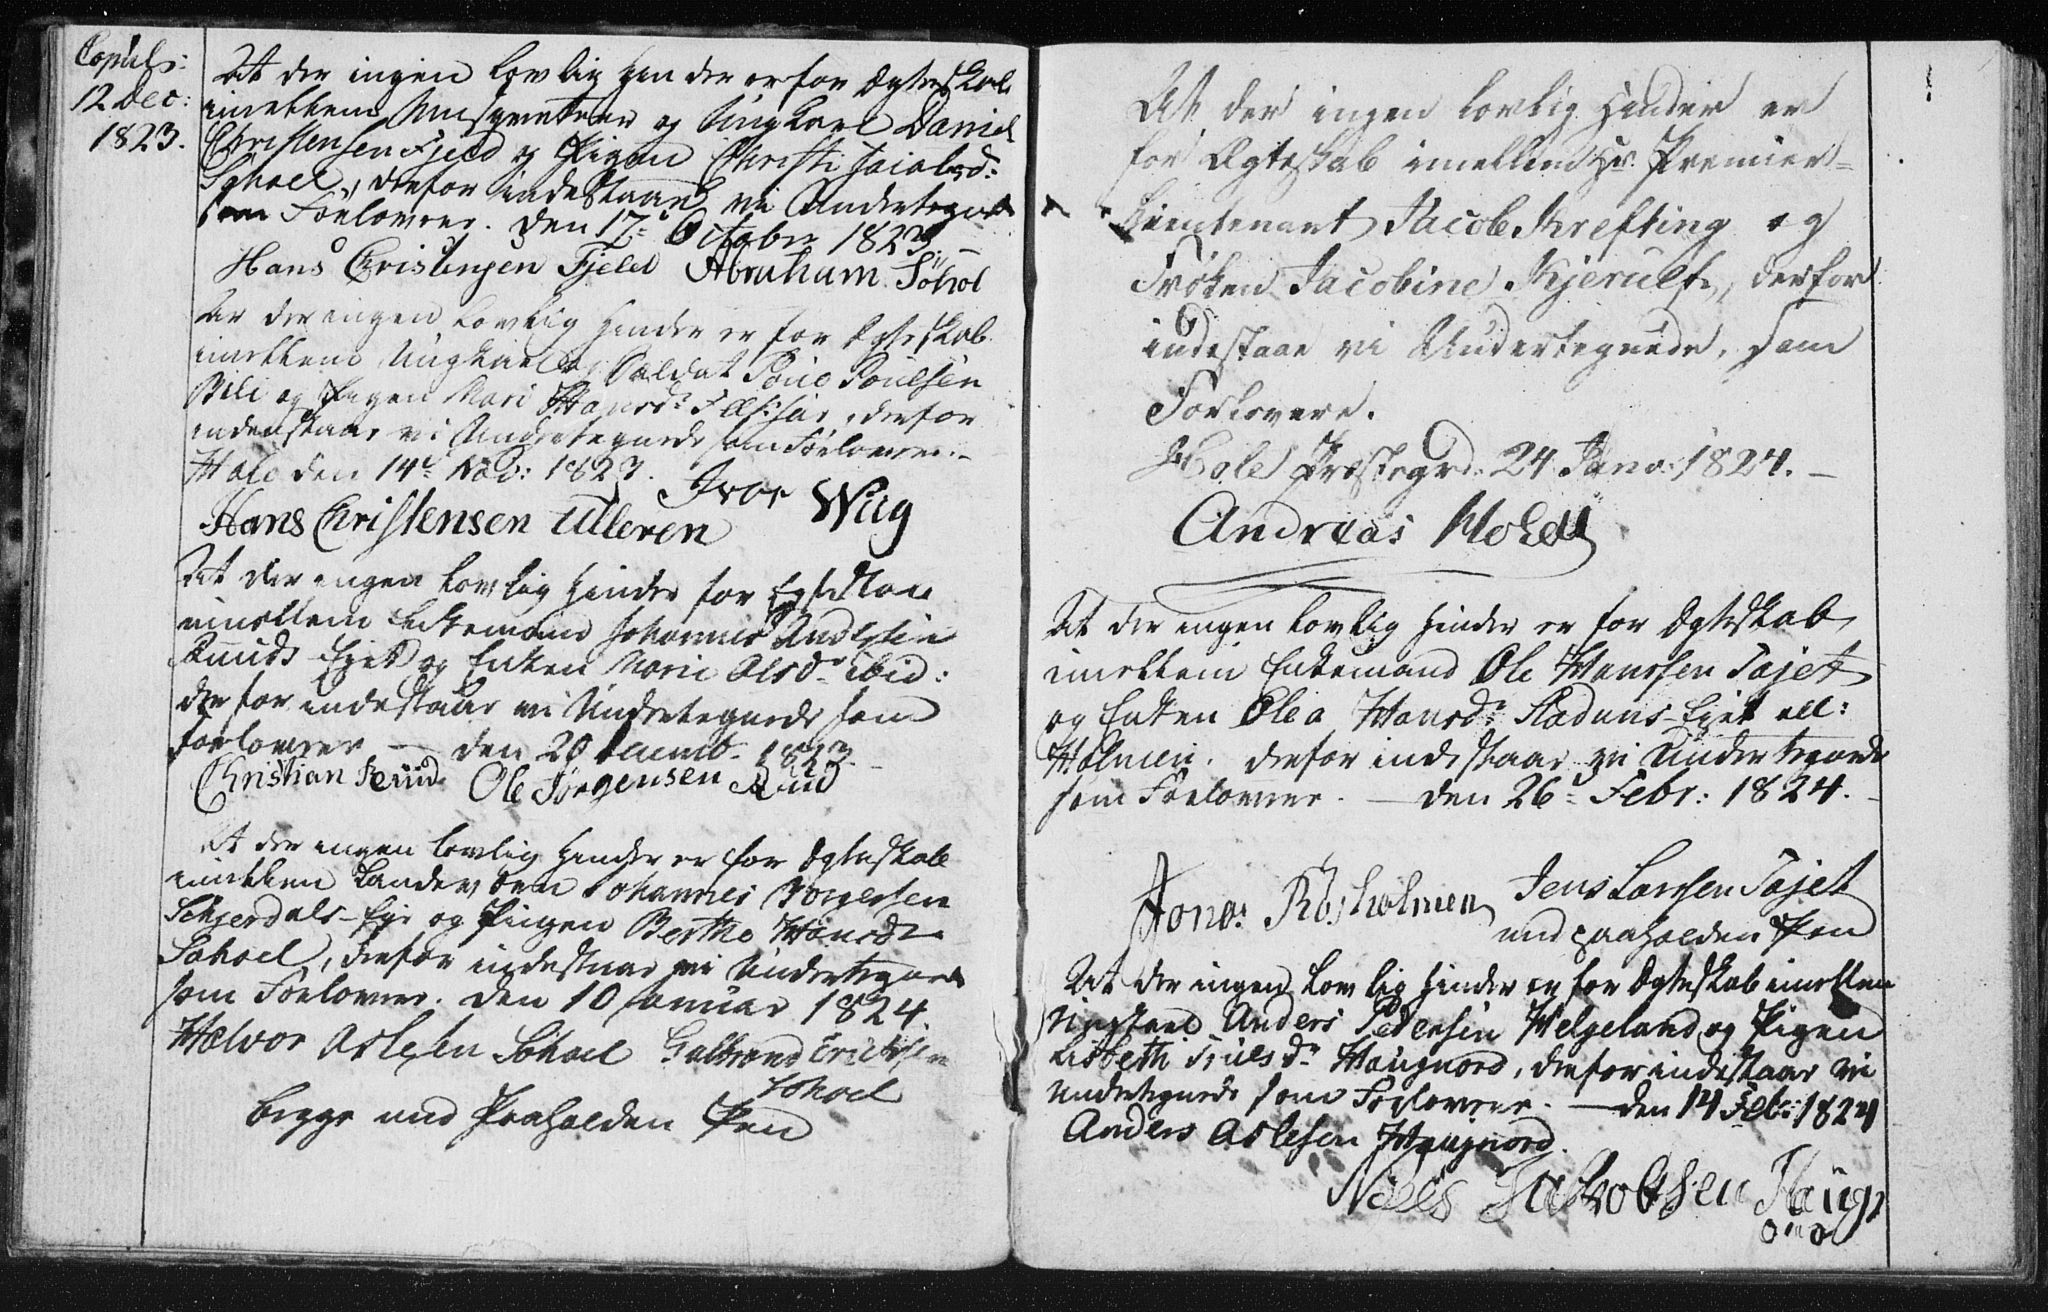 Copuls:
12 Dec:
1823.
At der ingen lovlig Hinder er for Ægteskab
imellem Ungkarl Daniel
Christensen Fjeld og Pigen Christi Jacobsd:
Søhoel, derfor indestaar vi Undertegnede
som Forlovere. Den 17de October 1823.
Hans Christensen Fjeld Abraham Søhol
At der ingen lovlig Hinder er for Ægteskab
imellem Ungkarl og Soldat Poul Poulsen
Bili og Pigen Mari Hansdr , derfor
indenstaar vi Undertegnede som Forlovere.
Hole den 14de Nov: 1823. Iver Wiig
Hans Christensen Ulleren
At der ingen lovlig Hinder for Egteskab
imellem Enkemand Johannes Andersen
Ruuds Eje og Enken Marie Olsdr ibid:
derfor indestaar vi Undertegnede som
Forlovere — den 20 Decemb. 1823.
Christian Ruud Ole Jørgensen Ruud
At der ingen lovlig Hinder er for Ægteskab
imellem Landev: Johannes Jørgensen
Schjerdals-Eje og Pigen Berthe Hansdr
Søhoel, derfor indestaar vi Undertegnede
som Forlovere. Den 10 Januar 1824.
Halvor Aslesen Søhoel Gulbrand Ericksen
Søhoel
begge med Paaholden Pen
At der ingen lovlig Hinder er
for Ægteskab imellem Hr. Premier-
Lieutenant Jacob Krefting og
Frøken Jacobine Kjerulf, derfor
indestaae vi Undertegnede, som
Forlovere.
Hole Præstegrd. 24 Janv: 1824. —
Andreas Moholdt
At der ingen lovlig Hinder er for Ægteskab
imellem Enkemand Ole Hanssen Tajet
og Enken Olea Hansdr Stadums-Ejet ell:
Holmen. derfor indestaar vi Undertegnede
som Forlovere. — den 26de Febr: 1824.
Jonas Røsholmen Jens Larssen Tajet
med paaholden Pen
At der ingen lovlig Hinder er for Ægteskab imellem
Ungkarl Anders Pedersen Helgeland og Pigen
Lisbeth Truelsdr Haugnord, derfor indestaar vi
undertegnede som Forlovere. — den 14 Feb: 1824
Anders Aslesen Haugnord.
Niels Jackobsen Haug